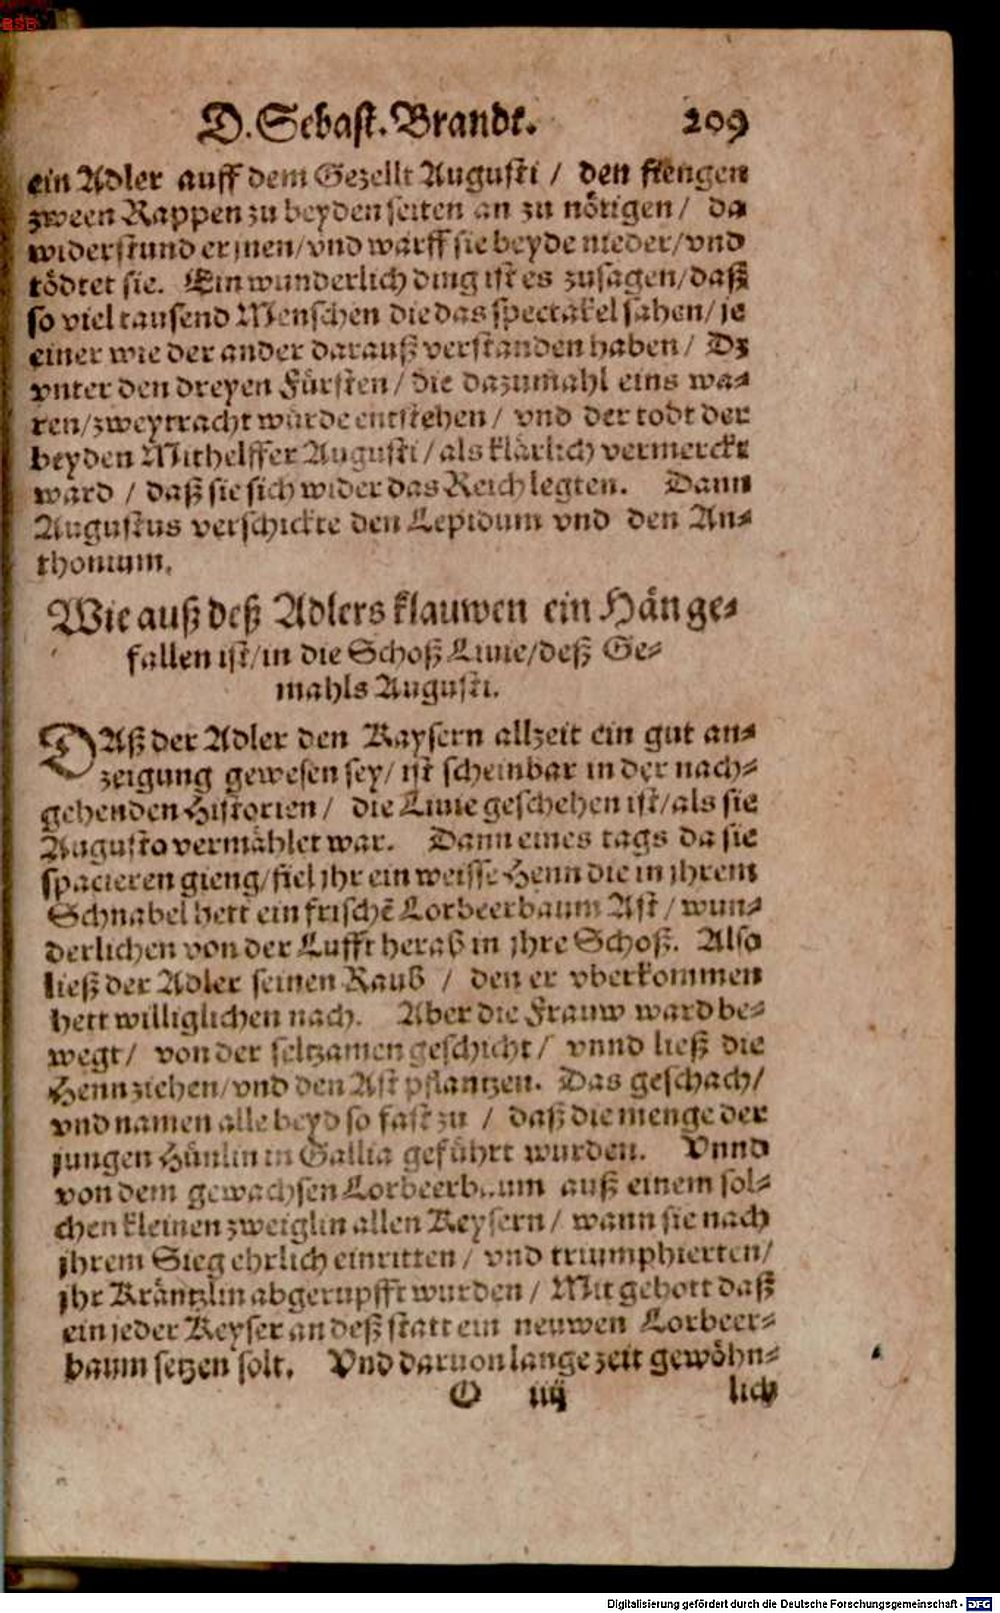 BSB
D. Sebast. Brandt. 209
ein Adler auff dem Gezellt Augusti / den fiengen
zween Rappen zu beyden seiten an zu nötigen / da
widerstund er jnen / vnd warff sie beyde nieder / vnd
tödtet sie. Ein wunderlich ding ist es zusagen / daß
so viel tausend Menschen die das spectakel sahen / je
einer wie der ander darauß verstanden haben / Dz
vnter den dreyen Fürsten / die dazumahl eins wa-
ren / zweytracht würde entstehen / vnd der todt der
beyden Mithelffer Augusti / als klärlich vermerckt
ward / daß sie sich wider das Reich legten. Dann
Augustus verschickte den Lepidum vnd den An-
thonium.
Wie auß deß Adlers klauwen ein Hän ge-
fallen ist / in die Schoß Liuie / deß Ge-
mahls Augusti.
DAß der Adler den Kaysern allzeit ein gut an-
zeigung gewesen sey / ist scheinbar in der nach-
gehenden Historien / die Liuie geschehen ist / als sie
Augusto vermählet war. Dann eines tags da sie
spacieren gieng / fiel jhr ein weisse Henn die in jhrem
Schnabel hett ein frischē Lorbeerbaum Ast / wun-
derlichen von der Lufft herab in jhre Schoß. Also
ließ der Adler seinen Raub / den er vberkommen
hett williglichen nach. Aber die Frauw ward be-
wegt / von der seltzamen geschicht / vnnd ließ die
Henn ziehen / vnd den Ast pflantzen. Das geschach /
vnd namen alle beyd so fast zu / daß die menge der
jungen Hünlin in Gallia geführt wurden. Vnnd
von dem gewachsen Lorbeerbaum auß einem sol-
chen kleinen zweiglin allen Keysern / wann sie nach
jhrem Sieg ehrlich einritten / vnd triumphierten /
jhr Kräntzlin abgerupfft wurden / Mit gebott daß
ein jeder Keyser an deß statt ein neuwen Lorbeer-
baum setzen solt. Vnd daruon lange zeit gewöhn-
O iiij lich
Digitalisierung gefördert durch die Deutsche Forschungsgemeinschaft - DFG